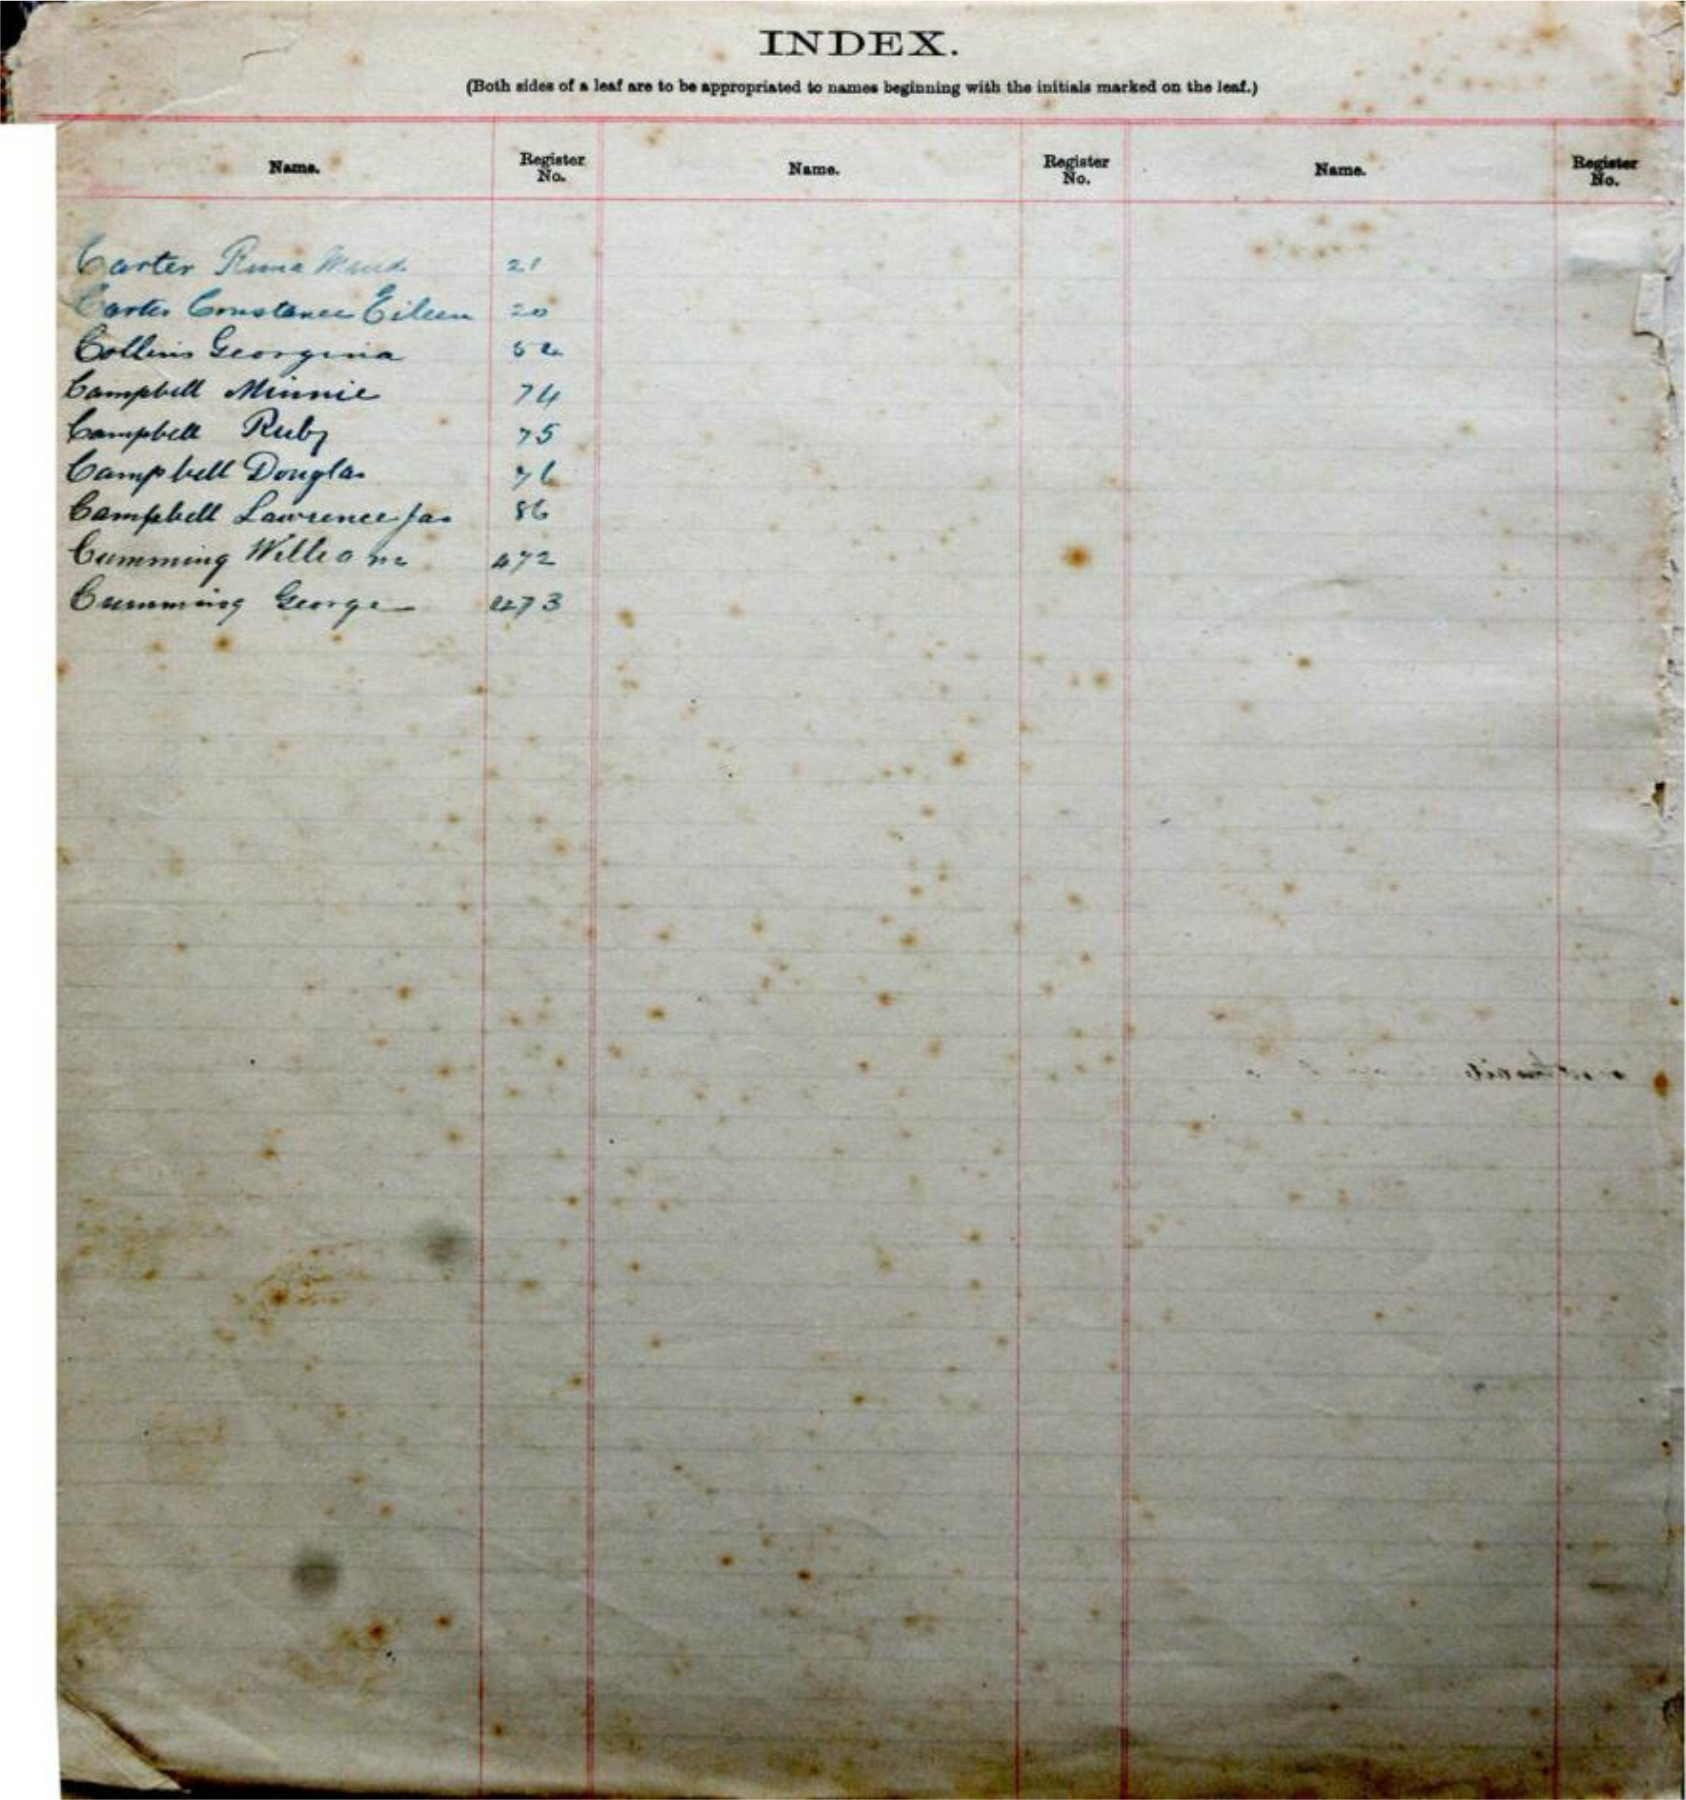 INDEX.
(Both sides of a leaf are to be appropriated to names beginning with the initials marked on the leaf.)
Name. Register No. Name. Register No. Name. Register No.
Carter 21
Carter Constance Eileen 20
Collins Georgina
Campbell Minnie 74
Campbell Ruby 75
Campbell Douglas 76
Campbell Lawrence Jas 86
Cumming William 472
Cumming George 473